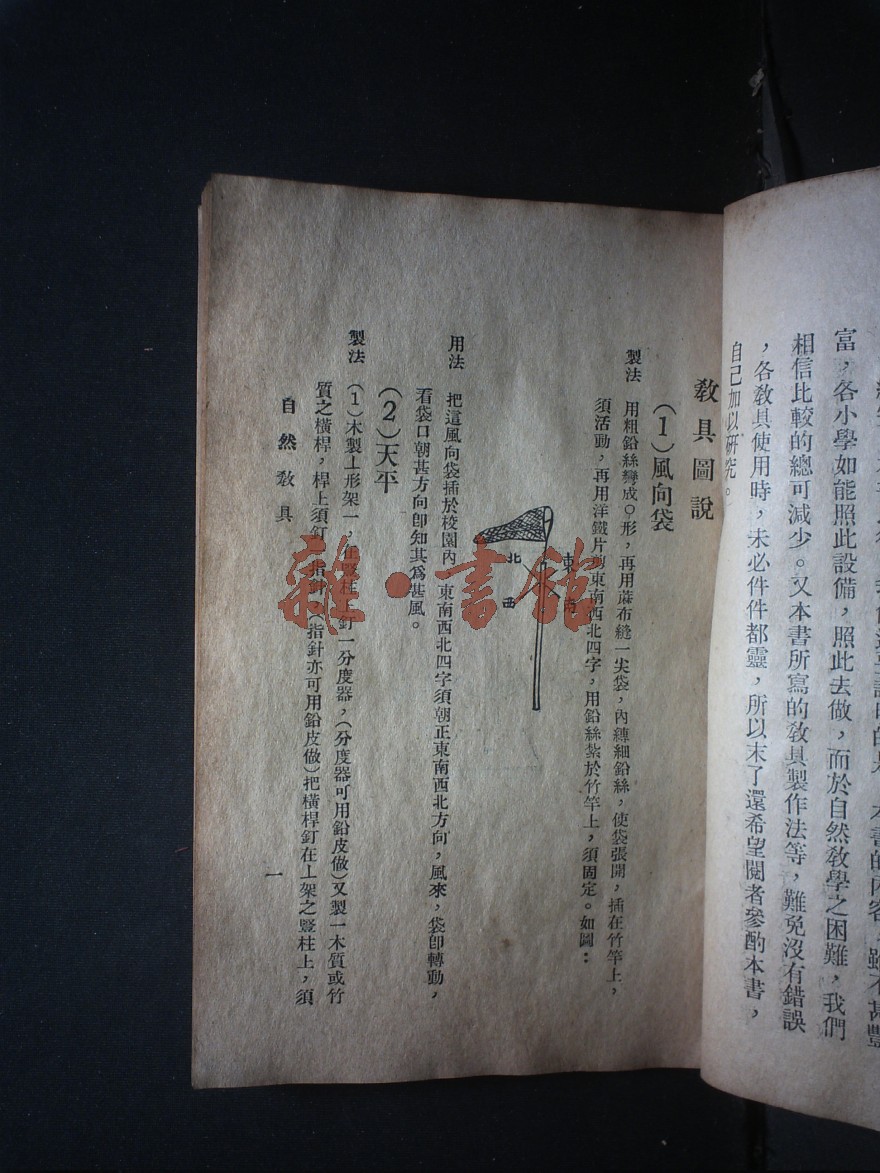 富，各小學如能照此設備，照此去做，而於自然教學之困難，我們
相信比較的總可減少。又本書所寫的教具製作法等，難免沒有錯誤
，各教具使用時，未必件件都靈，所以末了還希望閱者參酌本書，
自己加以研究。
教具圖說
（1）風向袋
製法　用粗鉛絲彎成〇形，再用蔴布縫一尖袋，內縳細鉛絲，使袋張開，插在竹竿上，
須活動，再用洋鐵片東南西北四字，用鉛絲紮於竹竿上，須固定。如圖：
東
南
北
西
用法　把這風向袋插於校園內　東南西北四字須朝正東南西北方向，風來，袋卽轉動，
看袋口朝甚方向卽知其爲甚風。
（2）天平
製法　（1）木製⊥形架一，在豎柱上釘一分度器，（分度器可用鉛皮做）又製一木質或竹
質之橫桿，桿上須釘一指針，（指針亦可用鉛皮做）把橫桿釘在⊥架之豎柱上，須
自然教具
一
雜·書館